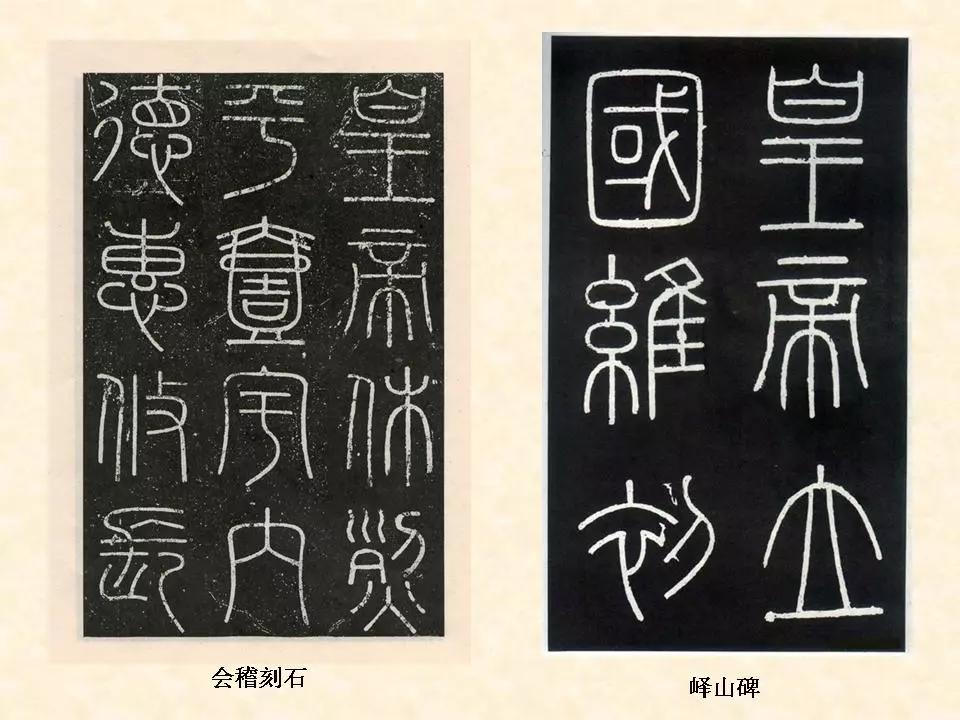 皇帝休烈
平壹宇内
德惠攸長
会稽刻石
皇帝立
國維初
峄山碑